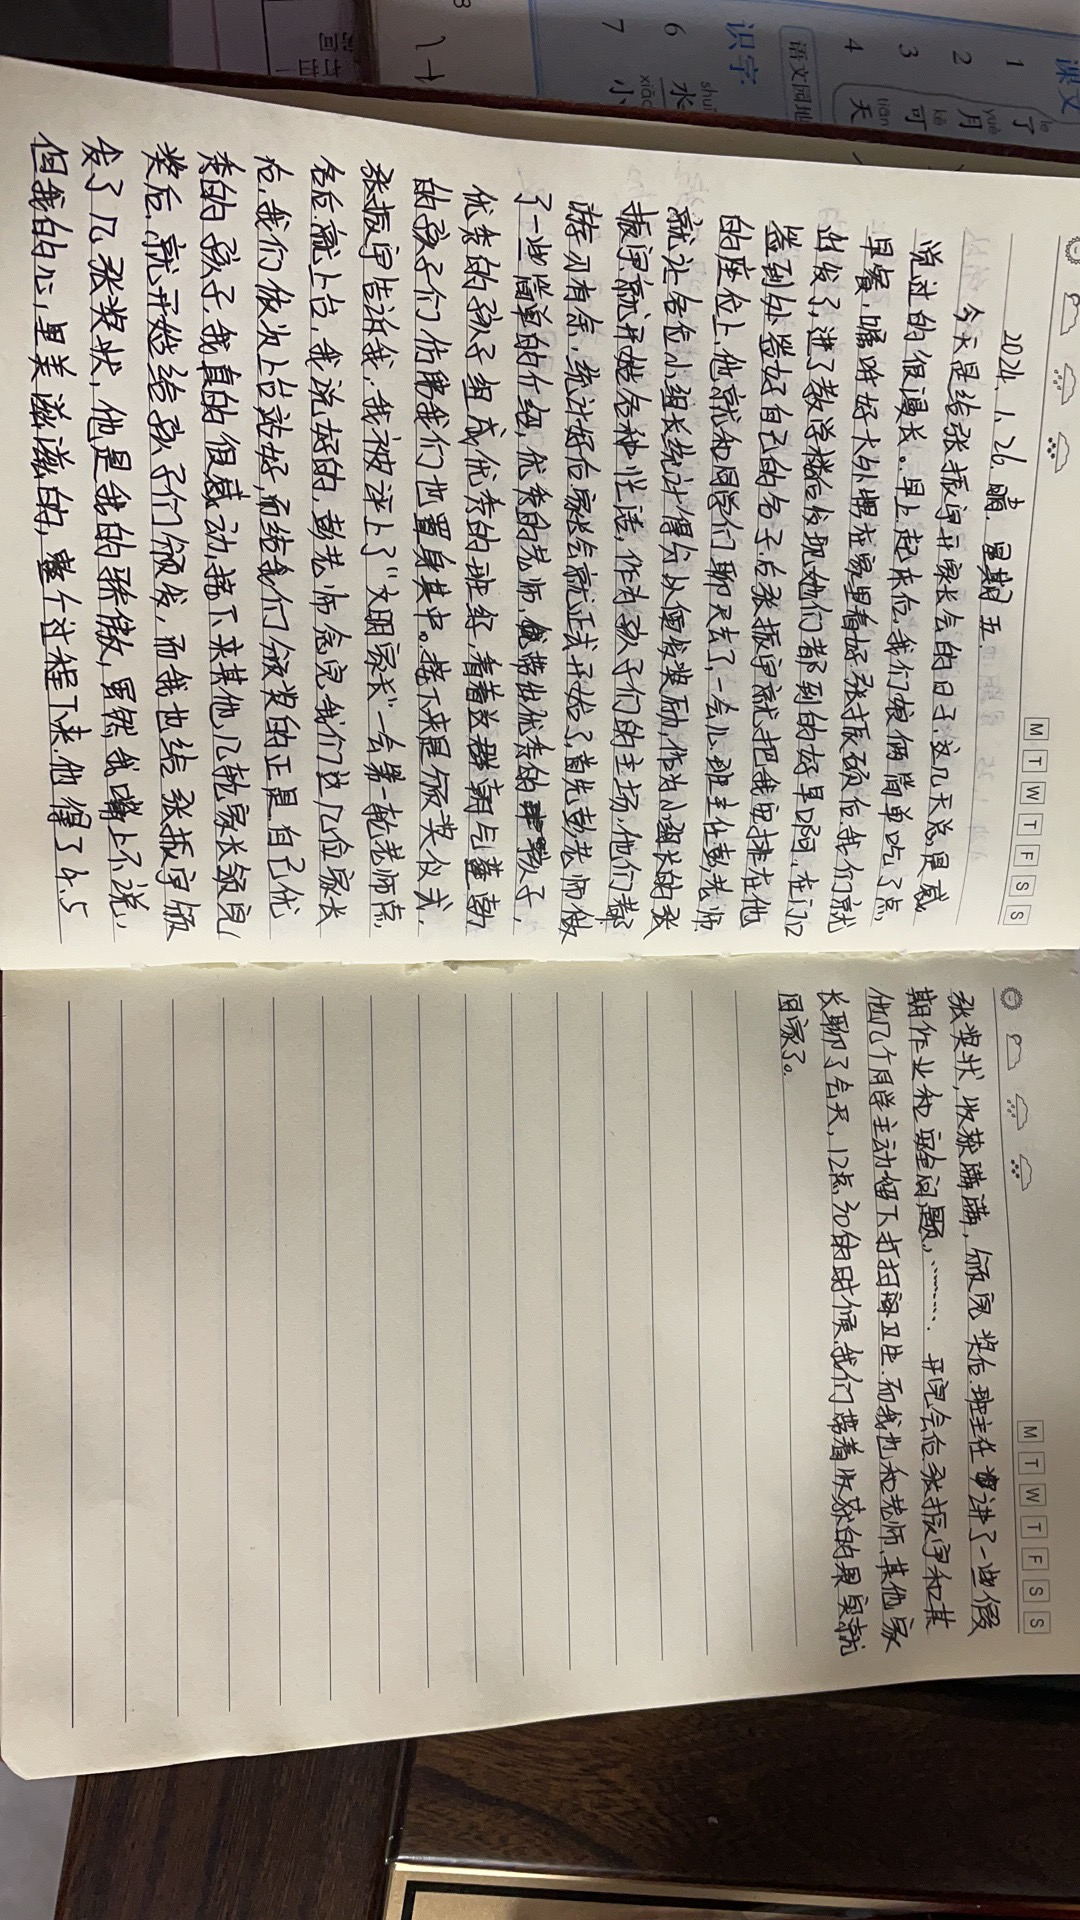 课文
1 了 le
2 月 yuè
3 可 kě
4 天 tiān
语文园地
识字
6 水 shuǐ
7 小 xiǎo
M T W T F S S
2024. 1. 26. 晴. 星期五.
今天是给张振宇开家长会的日子.这几天总是感
觉过的很漫长。早上起来后,我们娘俩简单吃了点
早餐.嘱咐好大外甥在家里看好张振硕后.我们就
出发了,进了教学楼后发现她们都到的好早啊,在门口
签到处签好自己的名子后张振宇就把我安排在他
的座位上,他就和同学们聊天去了,一会儿班主任彭老师
就让各位小组长统计得分以便发奖励,作为小组长的张
振宇就开始各种忙活,作为孩子们的主场,他们都
游刃有余,统计好后家长会就正式开始了,首先彭老师做
了一些简单的介绍,优秀的老师,带出优秀的孩子,
优秀的孩子组成优秀的班级,看着这群朝气蓬勃
的孩子们仿腾我们也置身其中。接下来是颁奖仪式.
张振宇告诉我,我被评上了“文明家长”一会第一轮老师点
名后.就上台,我说好的,彭老师念完我们这几位家长
后,我们依次上台站好,而给我们颁奖的正是自己优
秀的孩子,我真的很感动,接下来其他几轮家长领完
奖后,就开始给孩子们颁发,而我也给张振宇颁
发了几张奖状,他是我的骄傲,虽然我嘴上不说,
但我的心里美滋滋的,整个过程下来.他得了4.5
M T W T F S S
张奖状,收获满满,颁完奖后.班主任讲了一些假
期作业和安全问题,……. 开完会后张振宇和其
他几个同学主动留下打扫卫生.而我也和老师.其他家
长聊了会天,12点30的时候,我们带着收获的果实就
回家了。